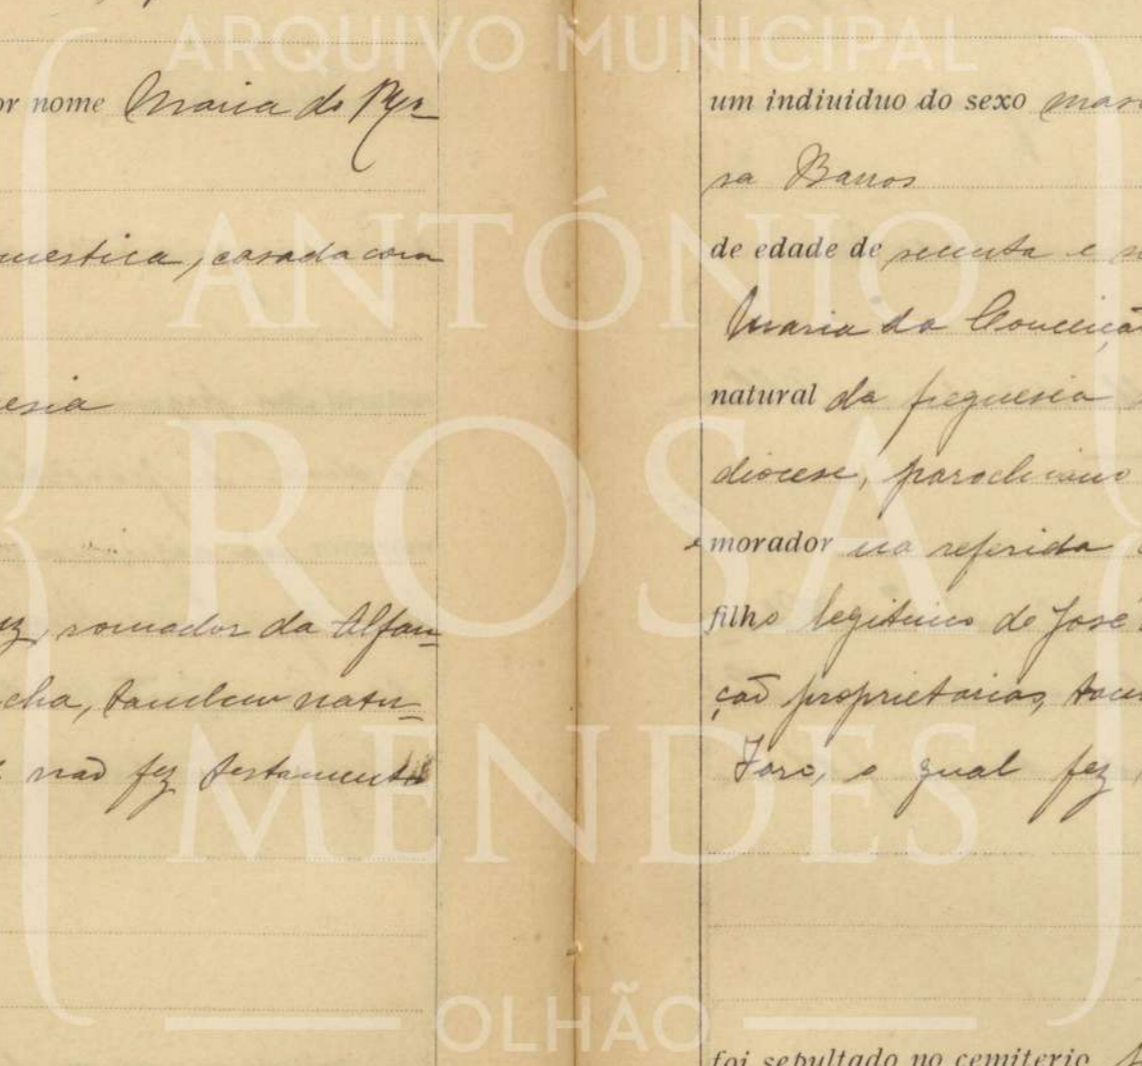 ARQUIVO MUNICIPAL
ANTÓNIO
ROSA
MENDES
OLHÃO
or nome Maria do
mestica, casada com
esia
somador da Alfan-
cha, tambem natu-
não fez testamento
um indiuiduo do sexo mas
ra Barros
de edade de e
Maria da Conceiçã
natural da freguesia
diocese, parochiano
morador na referida
filho legitimo de José
ção proprietarios, tam
Faro, o qual fez
foi sepultado no cemiterio